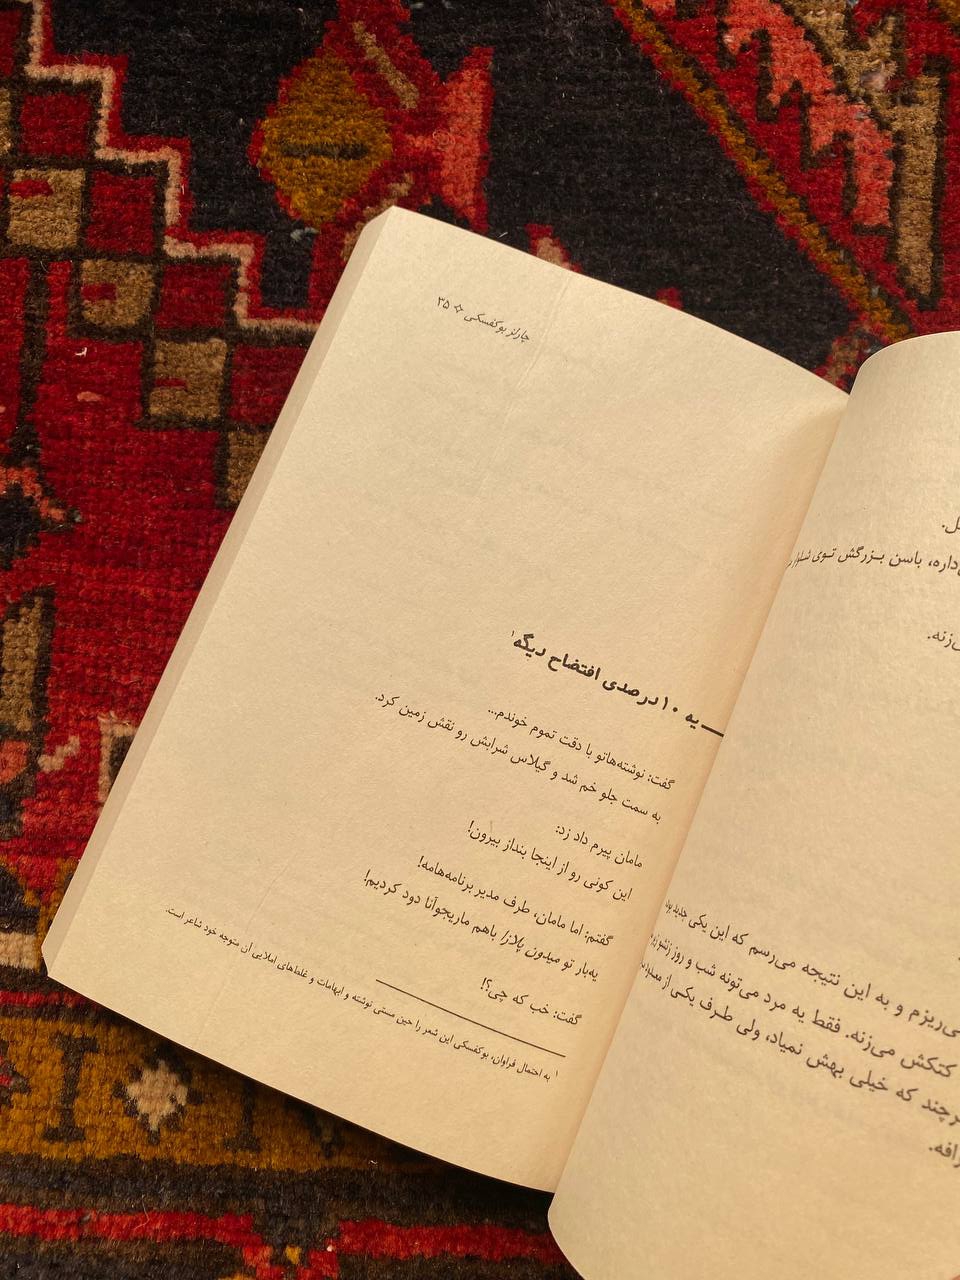 چارلز بوکفسکی ✧ ۳۵
یه ۱۰ درصدی افتضاح دیگه۱
گفت: نوشته‌هاتو با دقت تموم خوندم...
به سمت جلو خم شد و گیلاس شرابش رو نقش زمین کرد.
مامان پیرم داد زد:
این کونی رو از اینجا بنداز بیرون!
گفتم: اما مامان، طرف مدیر برنامه‌هامه!
یه‌بار تو میدون پلازا باهم ماریجوآنا دود کردیم!
گفت: خب که چی؟!
۱ به احتمال فراوان، بوکفسکی این شعر را حین مستی نوشته و ابهامات و غلط‌های املایی آن متوجه خود شاعر است.
باسن بزرگش توی
می‌ریزم و به این نتیجه می‌رسم که این یکی جدید
کتکش می‌زنه. فقط یه مرد می‌تونه شب و روز
هرچند که خیلی بهش نمیاد، ولی طرف یکی از